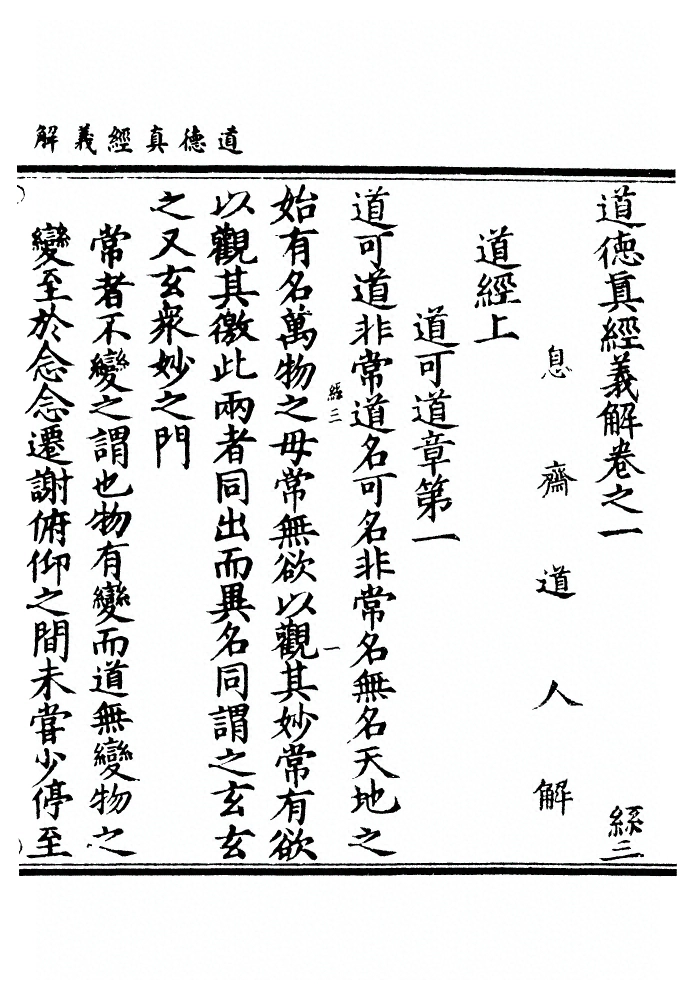 道德真經義解
道德真經義解卷之一
經三
息齋道人解
道經上
道可道章第一
道可道非常道名可名非常名無名天地之
經三
一
始有名萬物之母常無欲以觀其妙常有欲
以觀其徼此兩者同出而異名同謂之玄玄
之又玄衆妙之門
常者不變之謂也物有變而道無變物之
變至於念念遷謝俯仰之間未嘗少停至